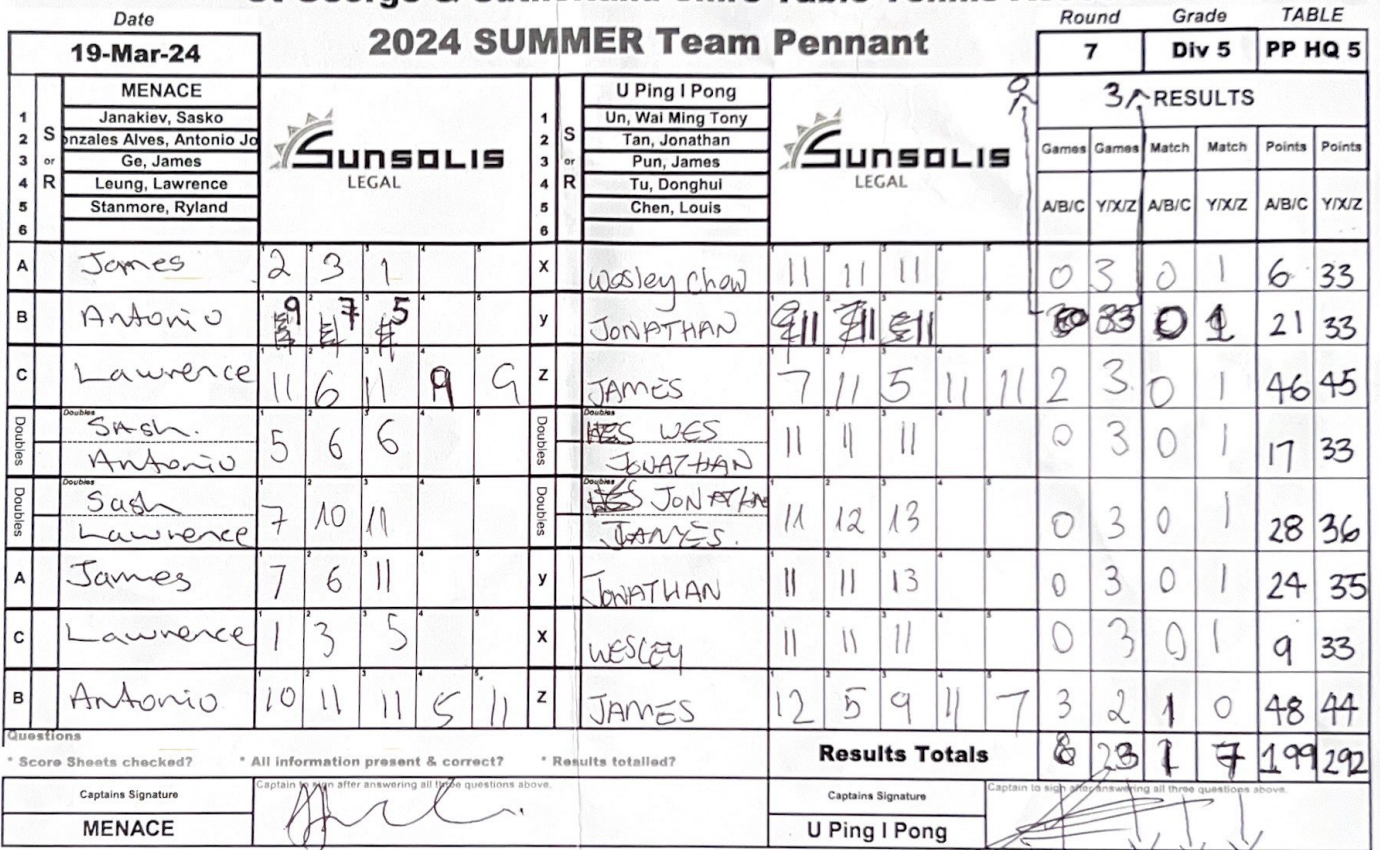 Date
19-Mar-24
2024 SUMMER Team Pennant
Round Grade TABLE
7 Div 5 PP HQ 5
0 3 RESULTS
S or R
1 2 3 4 5 6
MENACE
Janakiev, Sasko
onzales Alves, Antonio Jo
Ge, James
Leung, Lawrence
Stanmore, Ryland
SUNSOLIS
LEGAL
1 2 3 4 5 6
S or R
U Ping I Pong
Un, Wai Ming Tony
Tan, Jonathan
Pun, James
Tu, Donghui
Chen, Louis
SUNSOLIS
LEGAL
Games Games Match Match Points Points
A/B/C Y/X/Z A/B/C Y/X/Z A/B/C Y/X/Z
A James 2 3 1 X Wesley Chow 11 11 11 0 3 0 1 6 33
B Antonio 9 7 5 y JONATHAN 11 11 11 0 3 0 1 21 33
C Lawrence 11 6 11 9 9 Z JAMES 7 11 5 11 11 2 3 0 1 46 45
Doubles Doubles Sash. 5 6 6 Doubles Doubles WES 11 11 11 0 3 0 1 17 33
Antonio JONATHAN
Doubles Doubles Sash 7 10 11 Doubles Doubles JONATHAN 11 12 13 0 3 0 1 28 36
Lawrence JAMES.
A James 7 6 11 y JONATHAN 11 11 13 0 3 0 1 24 35
C Lawrence 1 3 5 X WESLEY 11 11 11 0 3 0 1 9 33
B Antonio 10 11 11 5 11 Z JAMES 12 5 9 11 7 3 2 1 0 48 44
Questions
* Score Sheets checked? * All information present & correct? * Results totalled? Results Totals 23 1 7 199 292
Captains Signature Captain to sign after answering all three questions above. Captains Signature Captain to sign after answering all three questions above.
MENACE U Ping I Pong